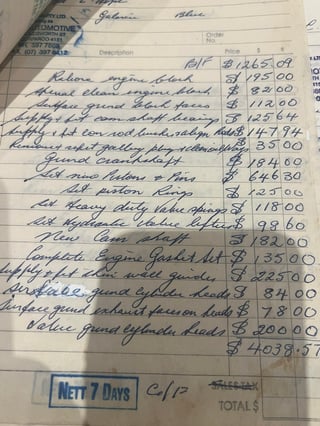 Galaxie Blue
PTY. LTD.
OMOTIVE
Order No.
TEL. 397 7808
FAX. (07) 397 6412
Description Price $ ¢
B/F $1265.09
Rebore engine block $ 195 00
Special clean engine block $ 82 00
Surface grind block faces $ 112 00
Supply & fit cam shaft bearings $ 125 64
Supply & fit con rod bushes align rods $ 147.94
Remove & refit gallery plugs & clean $ 35 00
Grind crankshaft $ 184 00
Set new Pistons & Pins $ 646 30
Set piston Rings $ 125 00
Set Heavy duty Valve springs $ 118 00
Set Hydraulic Valve lifters $ 98 60
New Cam shaft $ 182 00
Complete Engine Gasket Set $ 135 00
Supply & fit valve guides $ 225 00
grind cylinder heads $ 84 00
Surface grind exhaust faces on heads $ 78 00
Valve grind cylinder heads $ 200 00
$ 4038.57
NETT 7 DAYS C/F SALES TAX
TOTAL $